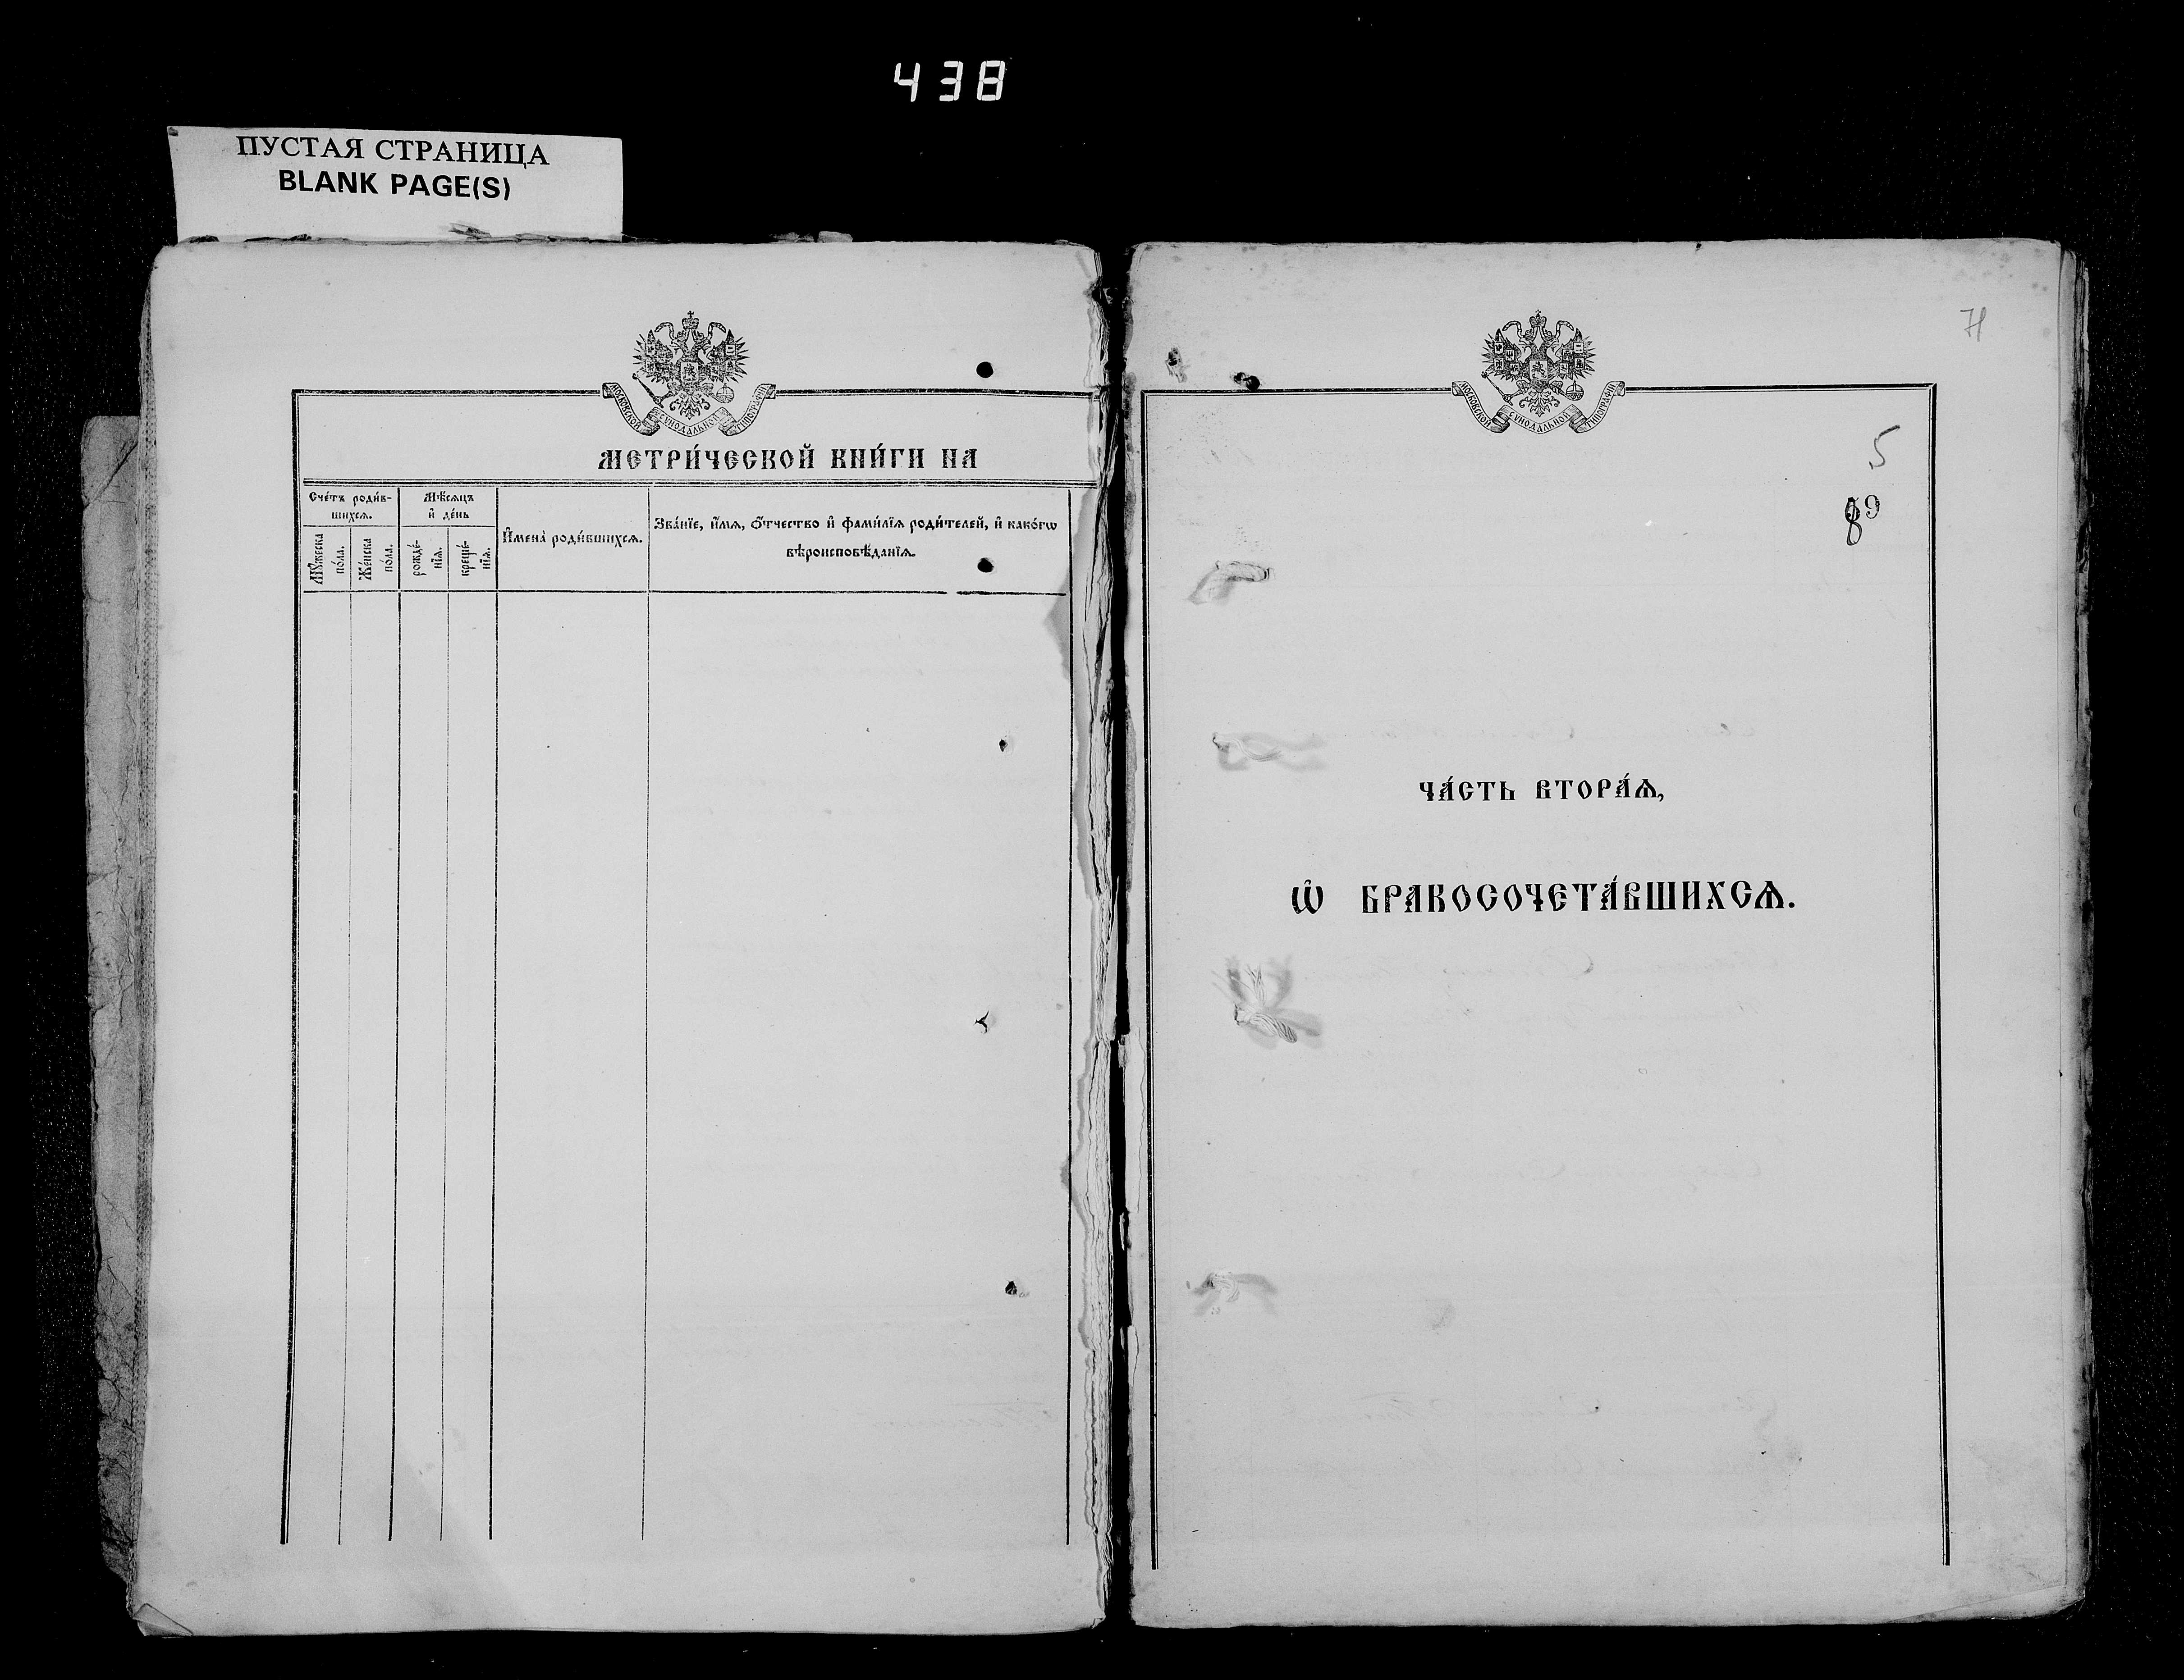 438
ПУСТАЯ СТРАНИЦА
BLANK PAGE(S)
МОСКОВСКОЙ СѴНОДАЛЬНОЙ ТИПОГРАФІИ
МЕТРИ́ЧЕСКОЙ КНИ́ГИ НА
Сче́тъ роди́в-
шихсѧ.
Мѣ́сѧцъ
и҆ де́нь
И҆мена̀ роди́вшихсѧ.
Зва́нїе, и҆́мѧ, ѻ҆́тчество и҆ фами́лїѧ роди́телей, и҆ како́гѡ
вѣроисповѣ́данїѧ.
Мꙋ́жеска
по́ла.
Же́нска
по́ла.
рожде́-
нїѧ.
креще́-
нїѧ.
МОСКОВСКОЙ СѴНОДАЛЬНОЙ ТИПОГРАФІИ
71
5
89
ЧА́СТЬ ВТОРА́Ѧ,
Ѽ БРАКОСОЧЕТА́ВШИХСѦ.